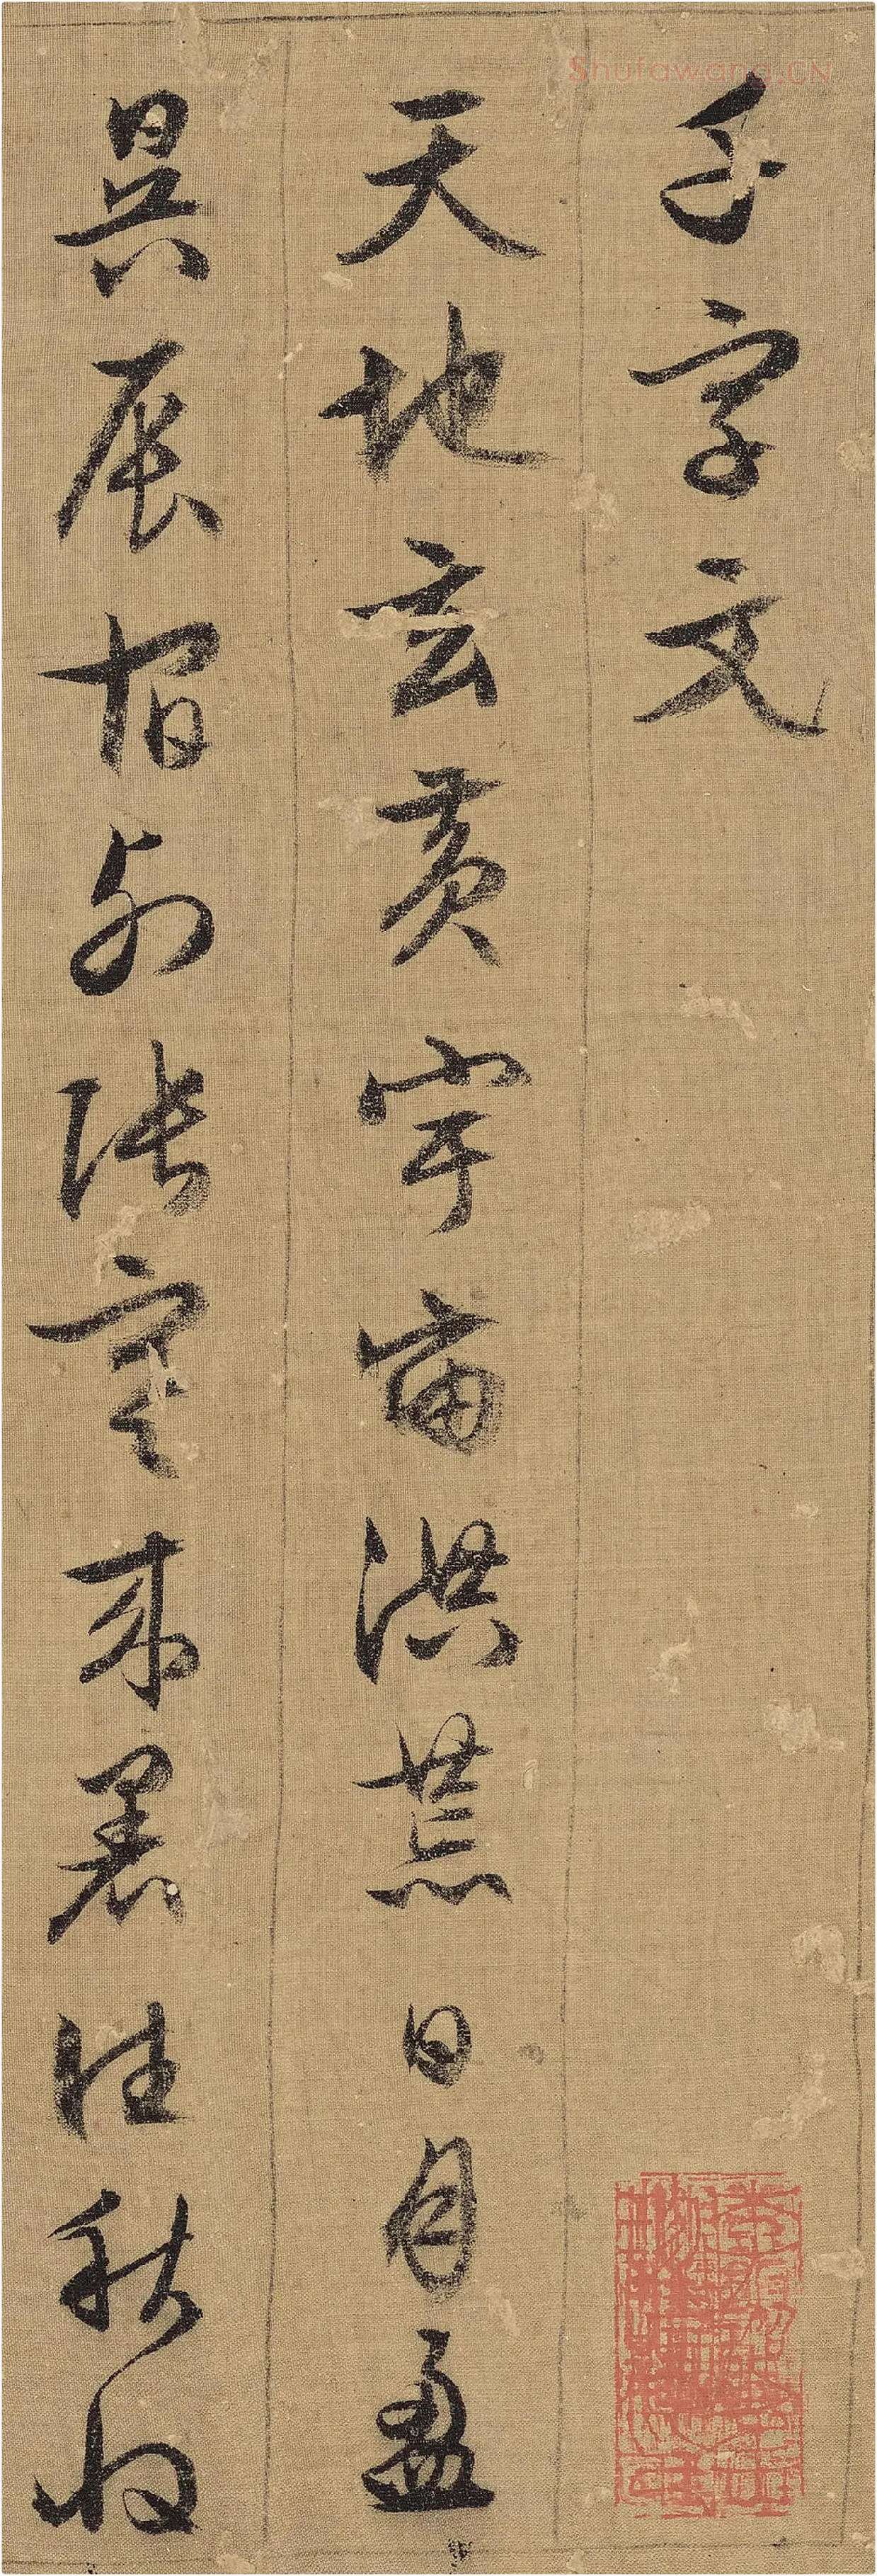 千字文
天地玄黃宇宙洪荒日月盈
昃辰宿列張寒來暑往秋收
Shufawang.CN